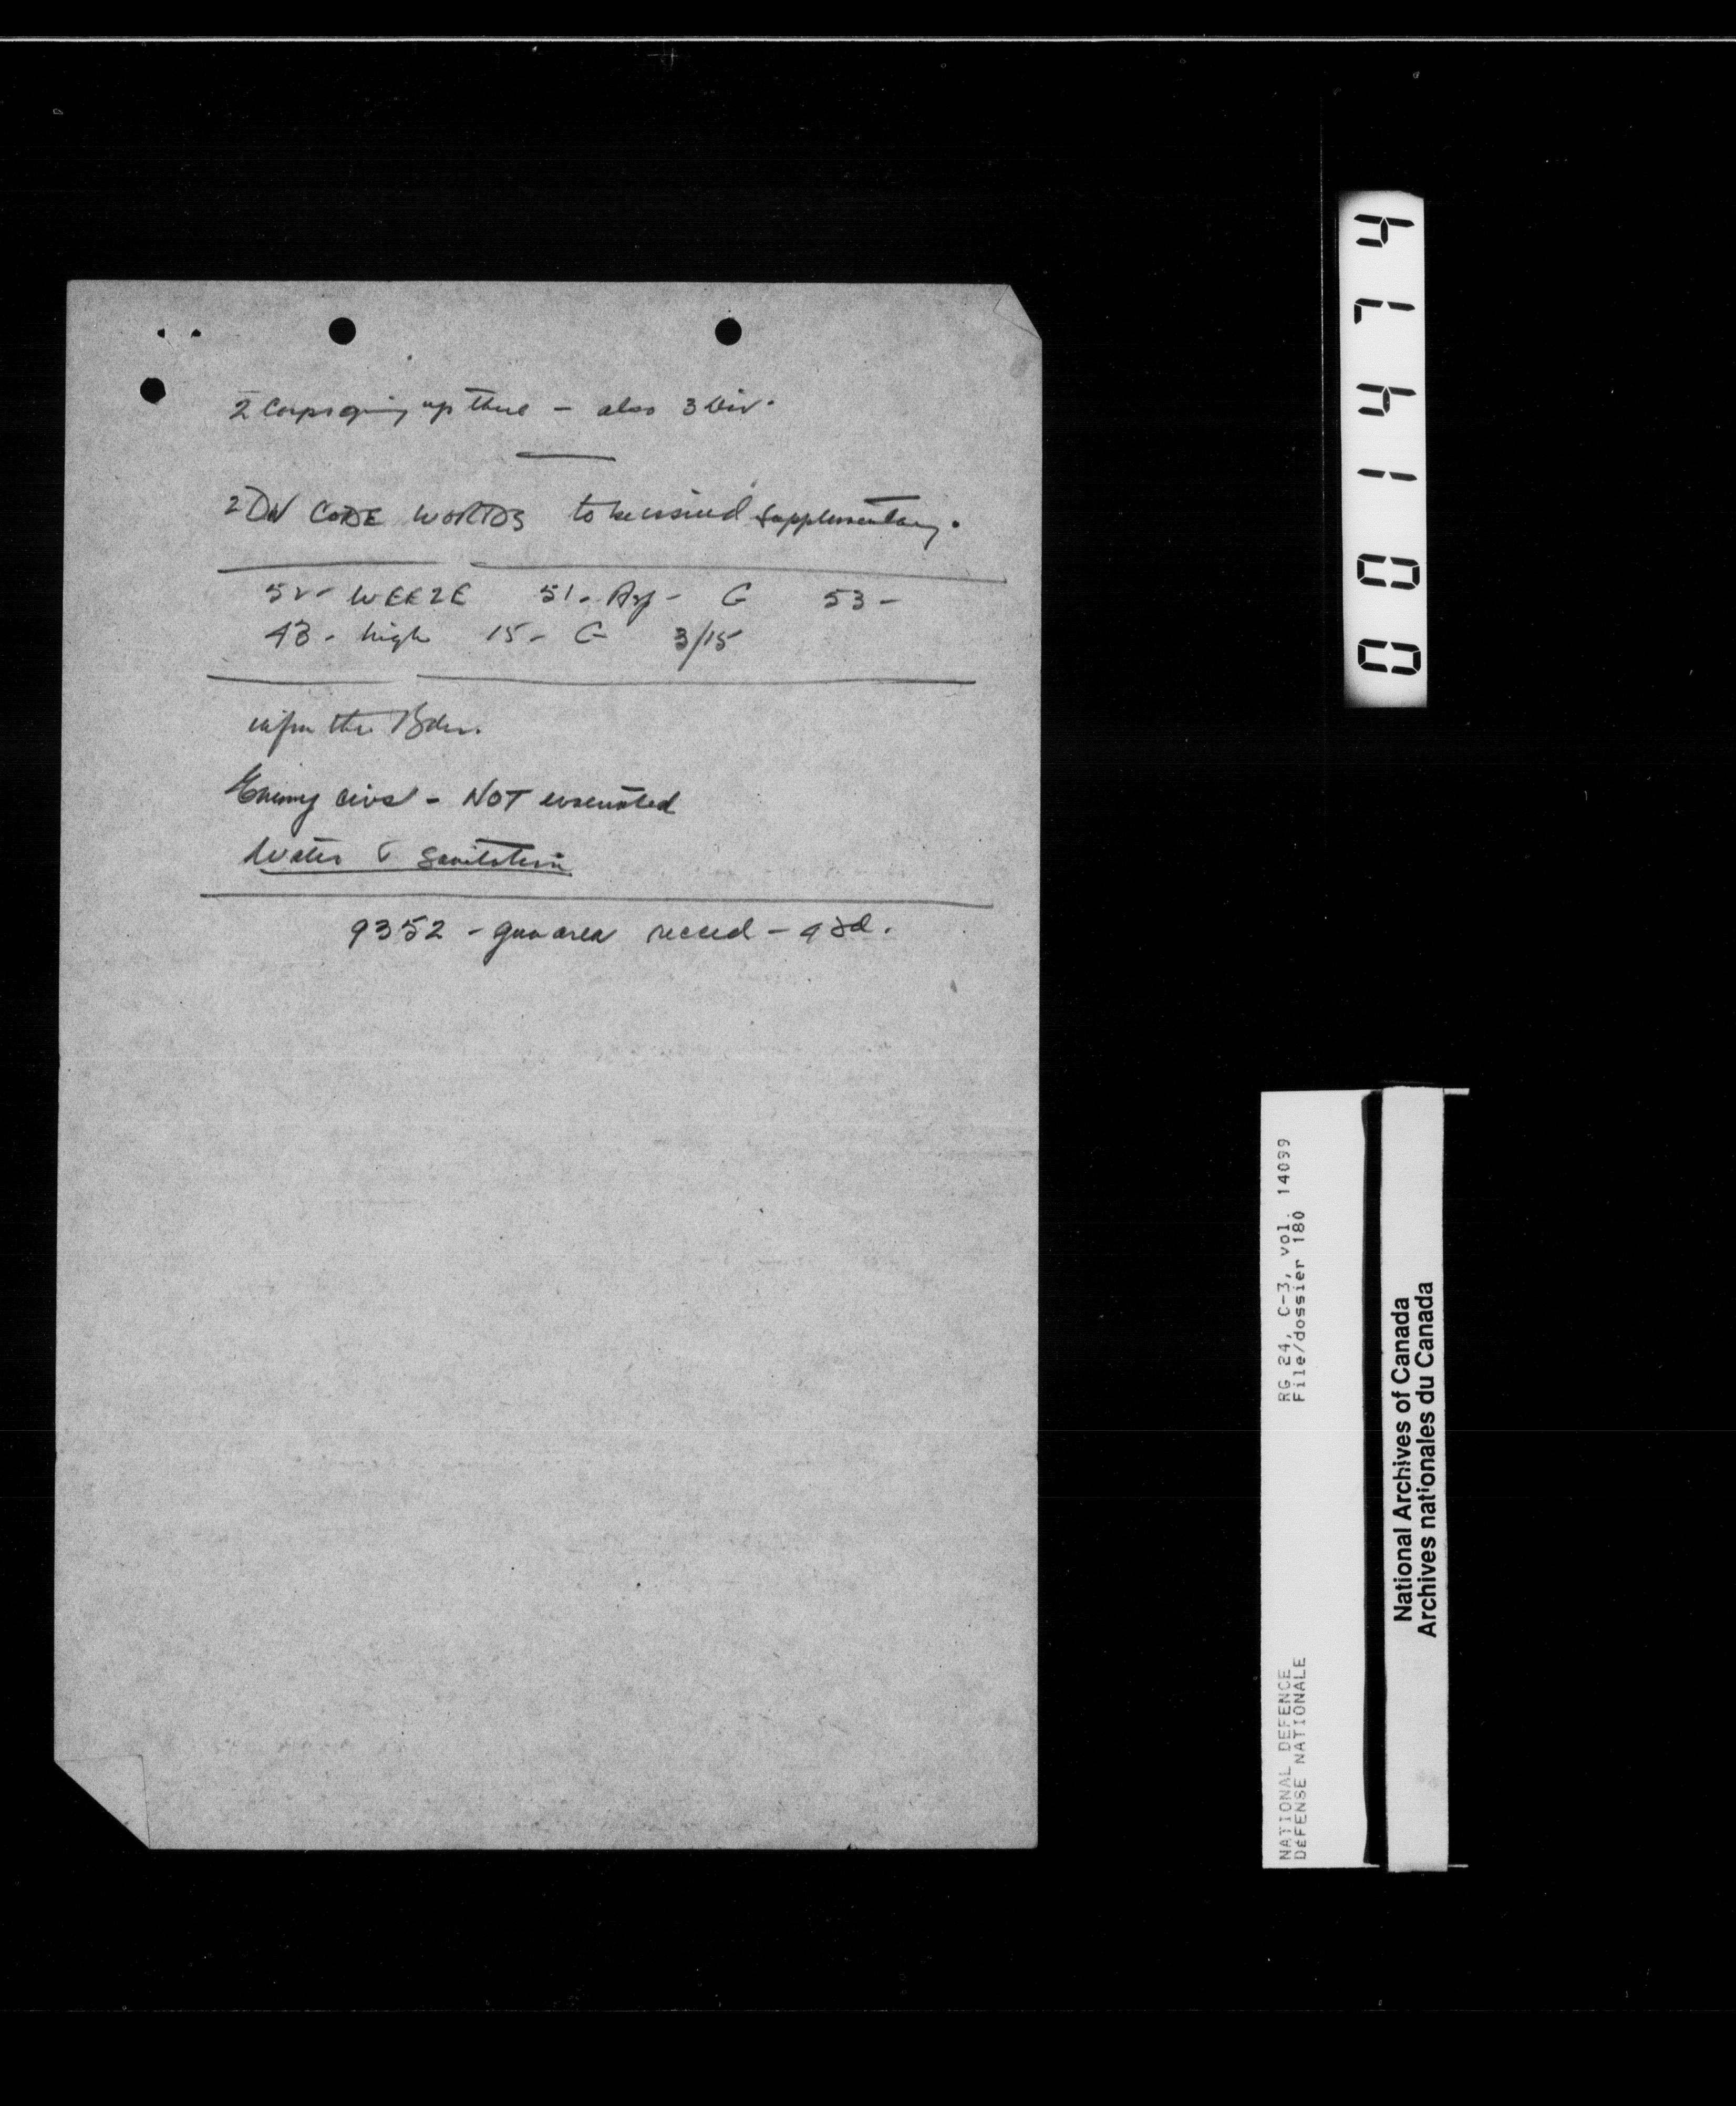 2 Corps going up there - also 3 Div.
2 Div CODE WORDS to be issued supplementary.
52 - WEEZE 51 - G 53 -
43 - high 15 - G 3/15
the Bdes.
Enemy civs - NOT evacuated
Water & Sanitation
9352 - gun area recced -
001474
RG 24, C-3, vol. 14099
File/dossier 180
NATIONAL DEFENCE
DÉFENSE NATIONALE
National Archives of Canada
Archives nationales du Canada